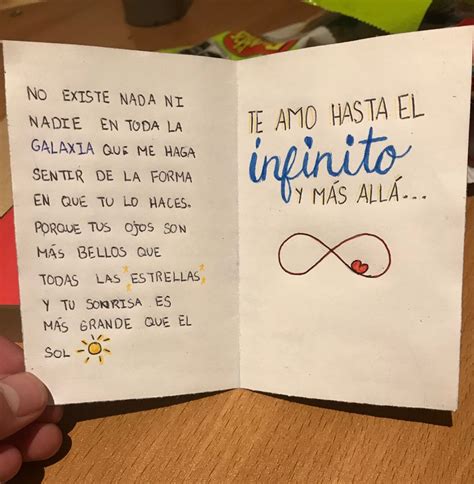 NO EXISTE NADA NI
NADIE EN TODA LA
GALAXIA QUE ME HAGA
SENTIR DE LA FORMA
EN QUE TU LO HACES.
PORQUE TUS OJOS SON
MÁS BELLOS QUE
TODAS LAS ESTRELLAS,
Y TU SONRISA ES
MÁS GRANDE QUE EL
SOL
TE AMO HASTA EL
infinito
Y MÁS ALLÁ...